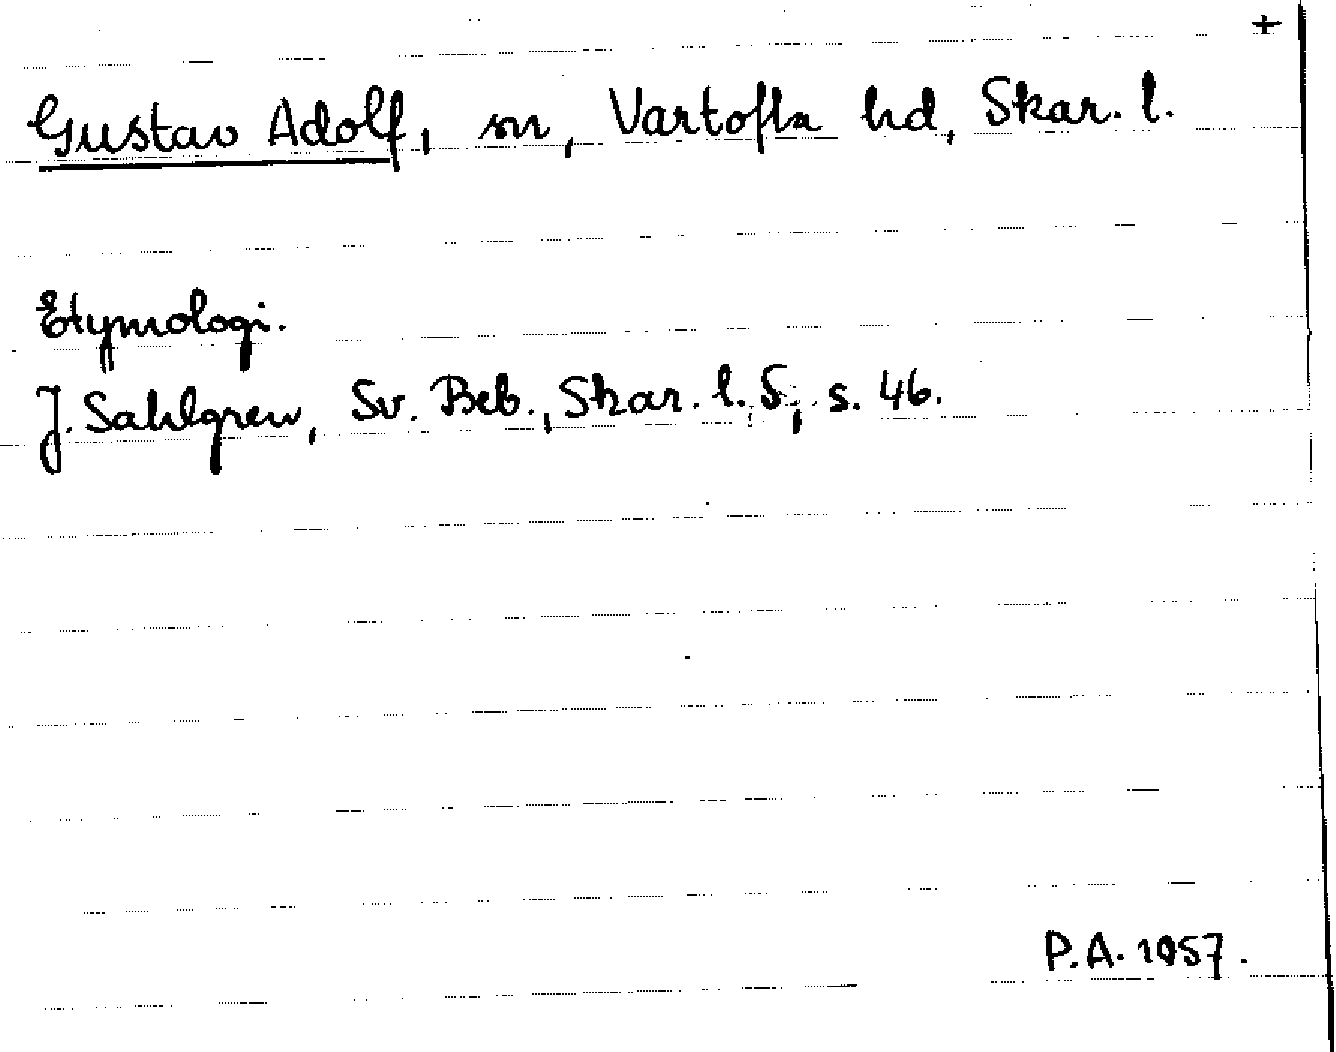 +
Gustav Adolf, sn, Vartofta hd, Skar. l.
Etymologi.
J. Sahlgren, Sv. Beb., Skar. l. 5, s. 46.
P.A. 1957.